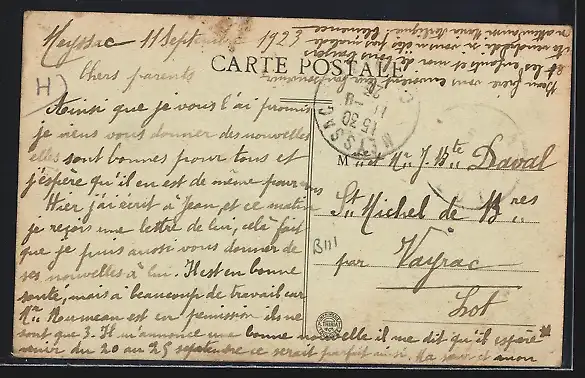 Meyssac 11 Septembre 1923
CARTE POSTALE
Chers parents
H)
Ainsi que je vous l'ai promis
je viens vous donner des nouvelles
elles sont bonnes pour tous et
j'espère qu'il en est de même pour vous
Hier j'ai écrit à Jean, et ce matin
je reçois une lettre de lui, celà fait
que je puis aussi vous donner de
ses nouvelles à lui. Il est en bonne
santé, mais à beaucoup de travail car
Mr Roumeau est en permission ils ne
sont que 3. Il m'annonce une bonne nouvelle il me dit qu'il espère
venir du 20 au 25 septembre ce serait parfait ainsi. Ma sœur et mon
Beau frère vous envoient
les enfants et moi
Clémence
MEYSSAC
15 30
11 - 9
23
Mme et Mr J. Bte Daval
St Michel de Bres
par Vayrac
Lot
B111